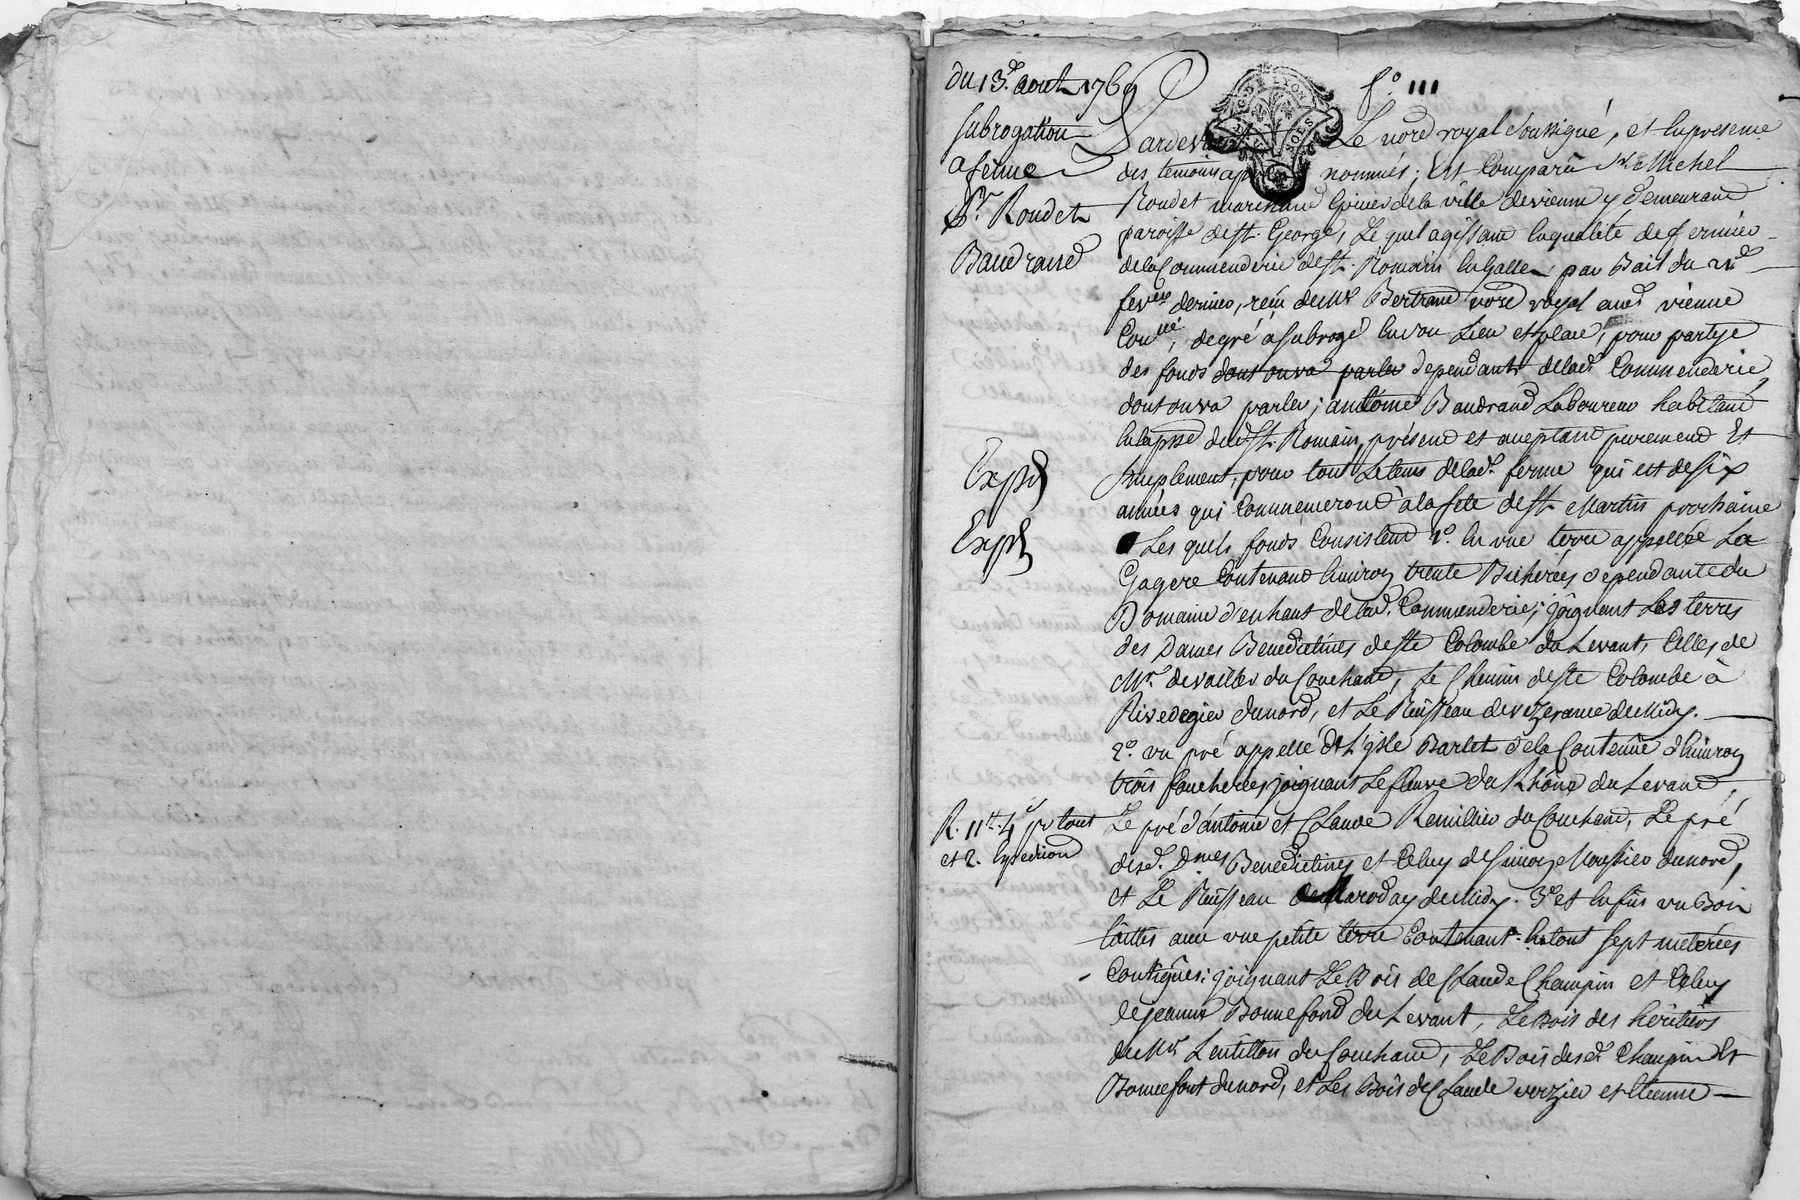 du 13e. aout 1769
f.o 111
subrogation
a ferme
Sr. Roudet
Baudrand
Pardevant Le nore royal soussigné, et en presence
des temoins apres nommés; Est Comparû Sr. Michel
Roudet marchand Epicier de la ville de vienne y demeurant
paroisse de st. George, Le quel agissant en qualité de fermier
de la Commenderie de st. Romain En Galle, par Bail du
fevrier dernier, reçu de Mr. Bertrand nore royal aud. vienne
de gré à subrogé En son Lieu et place, pour partye
des fonds dont on va parler dependants de lad. Commenderie
dont on va parler; antoine Baudrand Laboureur habitant
En la psse dud. st. Romain, présent et acceptant purement Et
simplement, pour tout Le tems de lad. ferme qui est de six
années qui Commenceront à la fête de st. Martin prochaine
Expd
Expd
Les quels fonds Consistent 1o. En une terre appellée La
Gagere Contenant Environ trente Bicherées dependante du
Domaine d'enhaut de lad. Commenderie, joignant Les terres
des Dames Benedictines de ste Colombe du Levant, Celles de
Mr. devaillier du Couchant, Le Chemin de ste Colombe à
Rivedegier du nord, et Le Ruisseau de vezerance du Midy.
2o. un pré appellé de L'isle Barlet de la Contenüe d'Environ
trois faucherées, joignant Le fleuve du Rhône du Levant,
R. 11tt. 4s pr tout
et 2. Expedition
Le pré d'antoine et Claude Remillier du Couchant, Le pré
desd. Dmes Benedictines et Celuy de simon Moussier du nord,
et Le Ruisseau de Maroday du Midy. 3o et Enfin un Bois
taillis avec une petite terre Contenant En tout sept meterées
Contigûes; joignant Le Bois de Claude Champin et Celuy
de jeanne Bonnefond du Levant, Le Bois des héritiers
de Mr. Lentillon du Couchant, Le Bois desd. Champin Et
Bonnefont du nord, et Les Bois de Claude verzier et Etienne